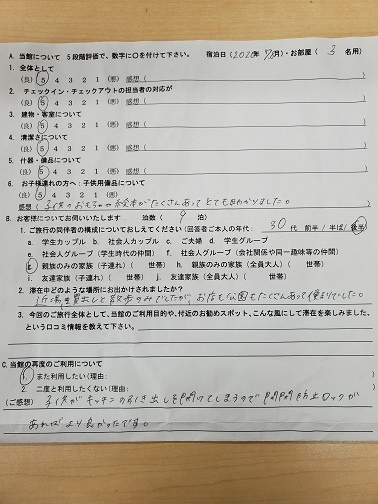 A. 当館について 5段階評価で、数字に○を付けて下さい。 宿泊日(2020年 月)・お部屋( 3 名用)
1. 全体として
(良) 5 4 3 2 1 (悪) 感想( )
2. チェックイン・チェックアウトの担当者の対応が
(良) 5 4 3 2 1 (悪) 感想( )
3. 建物・客室について
(良) 5 4 3 2 1 (悪) 感想( )
4. 清潔さについて
(良) 5 4 3 2 1 (悪) 感想( )
5. 什器・備品について
(良) 5 4 3 2 1 (悪) 感想( )
6. お子様連れの方へ:子供用備品について
(良) 5 4 3 2 1 (悪)
感想(子供のおもちゃや絵本がたくさんあってとても助かりました。 )
B. お客様についてお伺いいたします 泊数( 9 泊)
1. ご旅行の同伴者の構成についておしえてください(回答者ご本人の年代: 30 代 前半 / 半ば / 後半)
a. 学生カップル b. 社会人カップル c. ご夫婦 d. 学生グループ
e. 社会人グループ(学生時代の仲間) f. 社会人グループ(会社関係や同一趣味等の仲間)
g. 親族のみの家族(子連れ)( 世帯) h. 親族のみの家族(全員大人)( 世帯)
i. 友達家族(子連れ)( 世帯) j. 友達家族(全員大人)( 世帯)
2. 滞在中どのような場所にお出かけされましたか?
近場の買出しと散歩のみでしたが、お店も公園もたくさんあって便利でした。
3. 今回のご旅行全体として、当館のご利用目的や、付近のお勧めスポット、こんな風にして滞在を楽しみました、
という口コミ情報を教えて下さい。
C. 当館の再度のご利用について
1. また利用したい(理由: )
2. 二度と利用したくない(理由: )
(ご感想) 子供がキッチンの引き出しを開けてしまうので開閉防止ロックが
あればより良かったです。